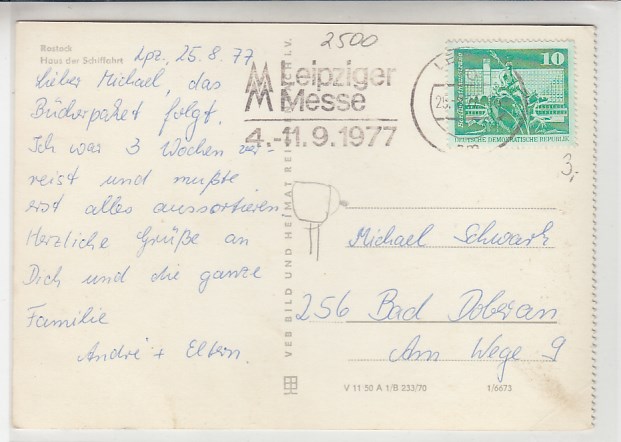 Rostock
Haus der Schiffahrt
Lpz., 25.8.77
Lieber Michael, das
Bücherpaket folgt.
Ich war 3 Wochen ver-
reist und mußte
erst alles aussortieren.
Herzliche Grüße an
Dich und die ganze
Familie
André + Eltern.
2500
MM Leipziger
Messe
4.-11.9.1977
10
DEUTSCHE DEMOKRATISCHE REPUBLIK
3,-
VEB BILD UND HEIMAT REICHENBACH I. V.
Michael Schwark
256 Bad Doberan
Am Wege 9
V 11 50 A 1/B 233/70
1/6673